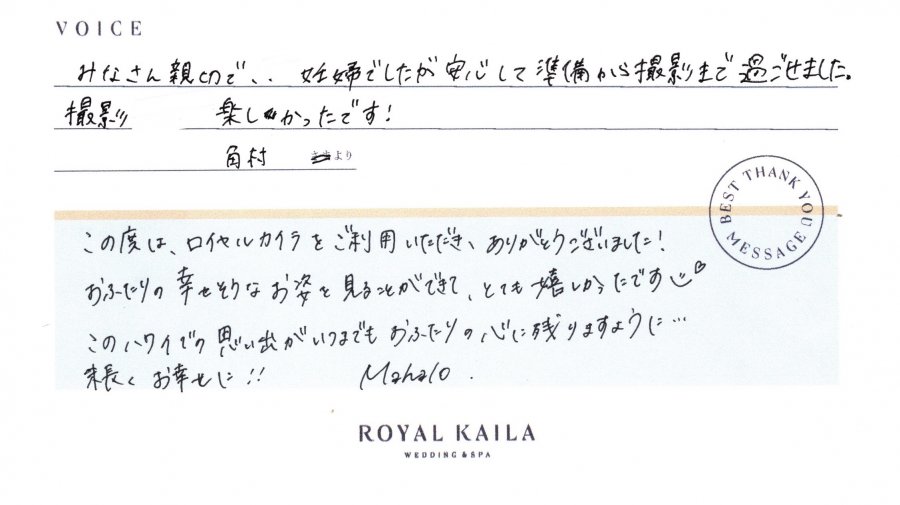 VOICE
みなさん親切で、、妊婦でしたが安心して準備から撮影まで過ごせました。
撮影 楽しかったです!
角村 さまより
BEST THANK YOU MESSAGE
この度は、ロイヤルカイラをご利用いただき、ありがとうございました!
おふたりの幸せそうなお姿を見ることができて、とても嬉しかったです♡
このハワイでの思い出がいつまでもおふたりの心に残りますように…
末長くお幸せに!!
Mahalo.
ROYAL KAILA
WEDDING & SPA